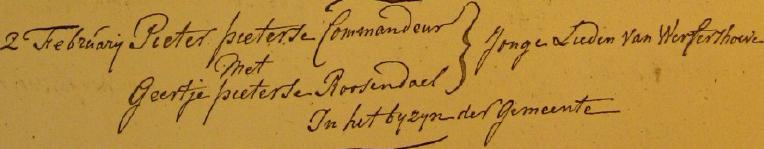 2 February Pieter pieterse Commandeur } Jonge Lieden van Werfershoeve
Met
Geertje pieterse Roosendael
In het byzyn der Gemeente